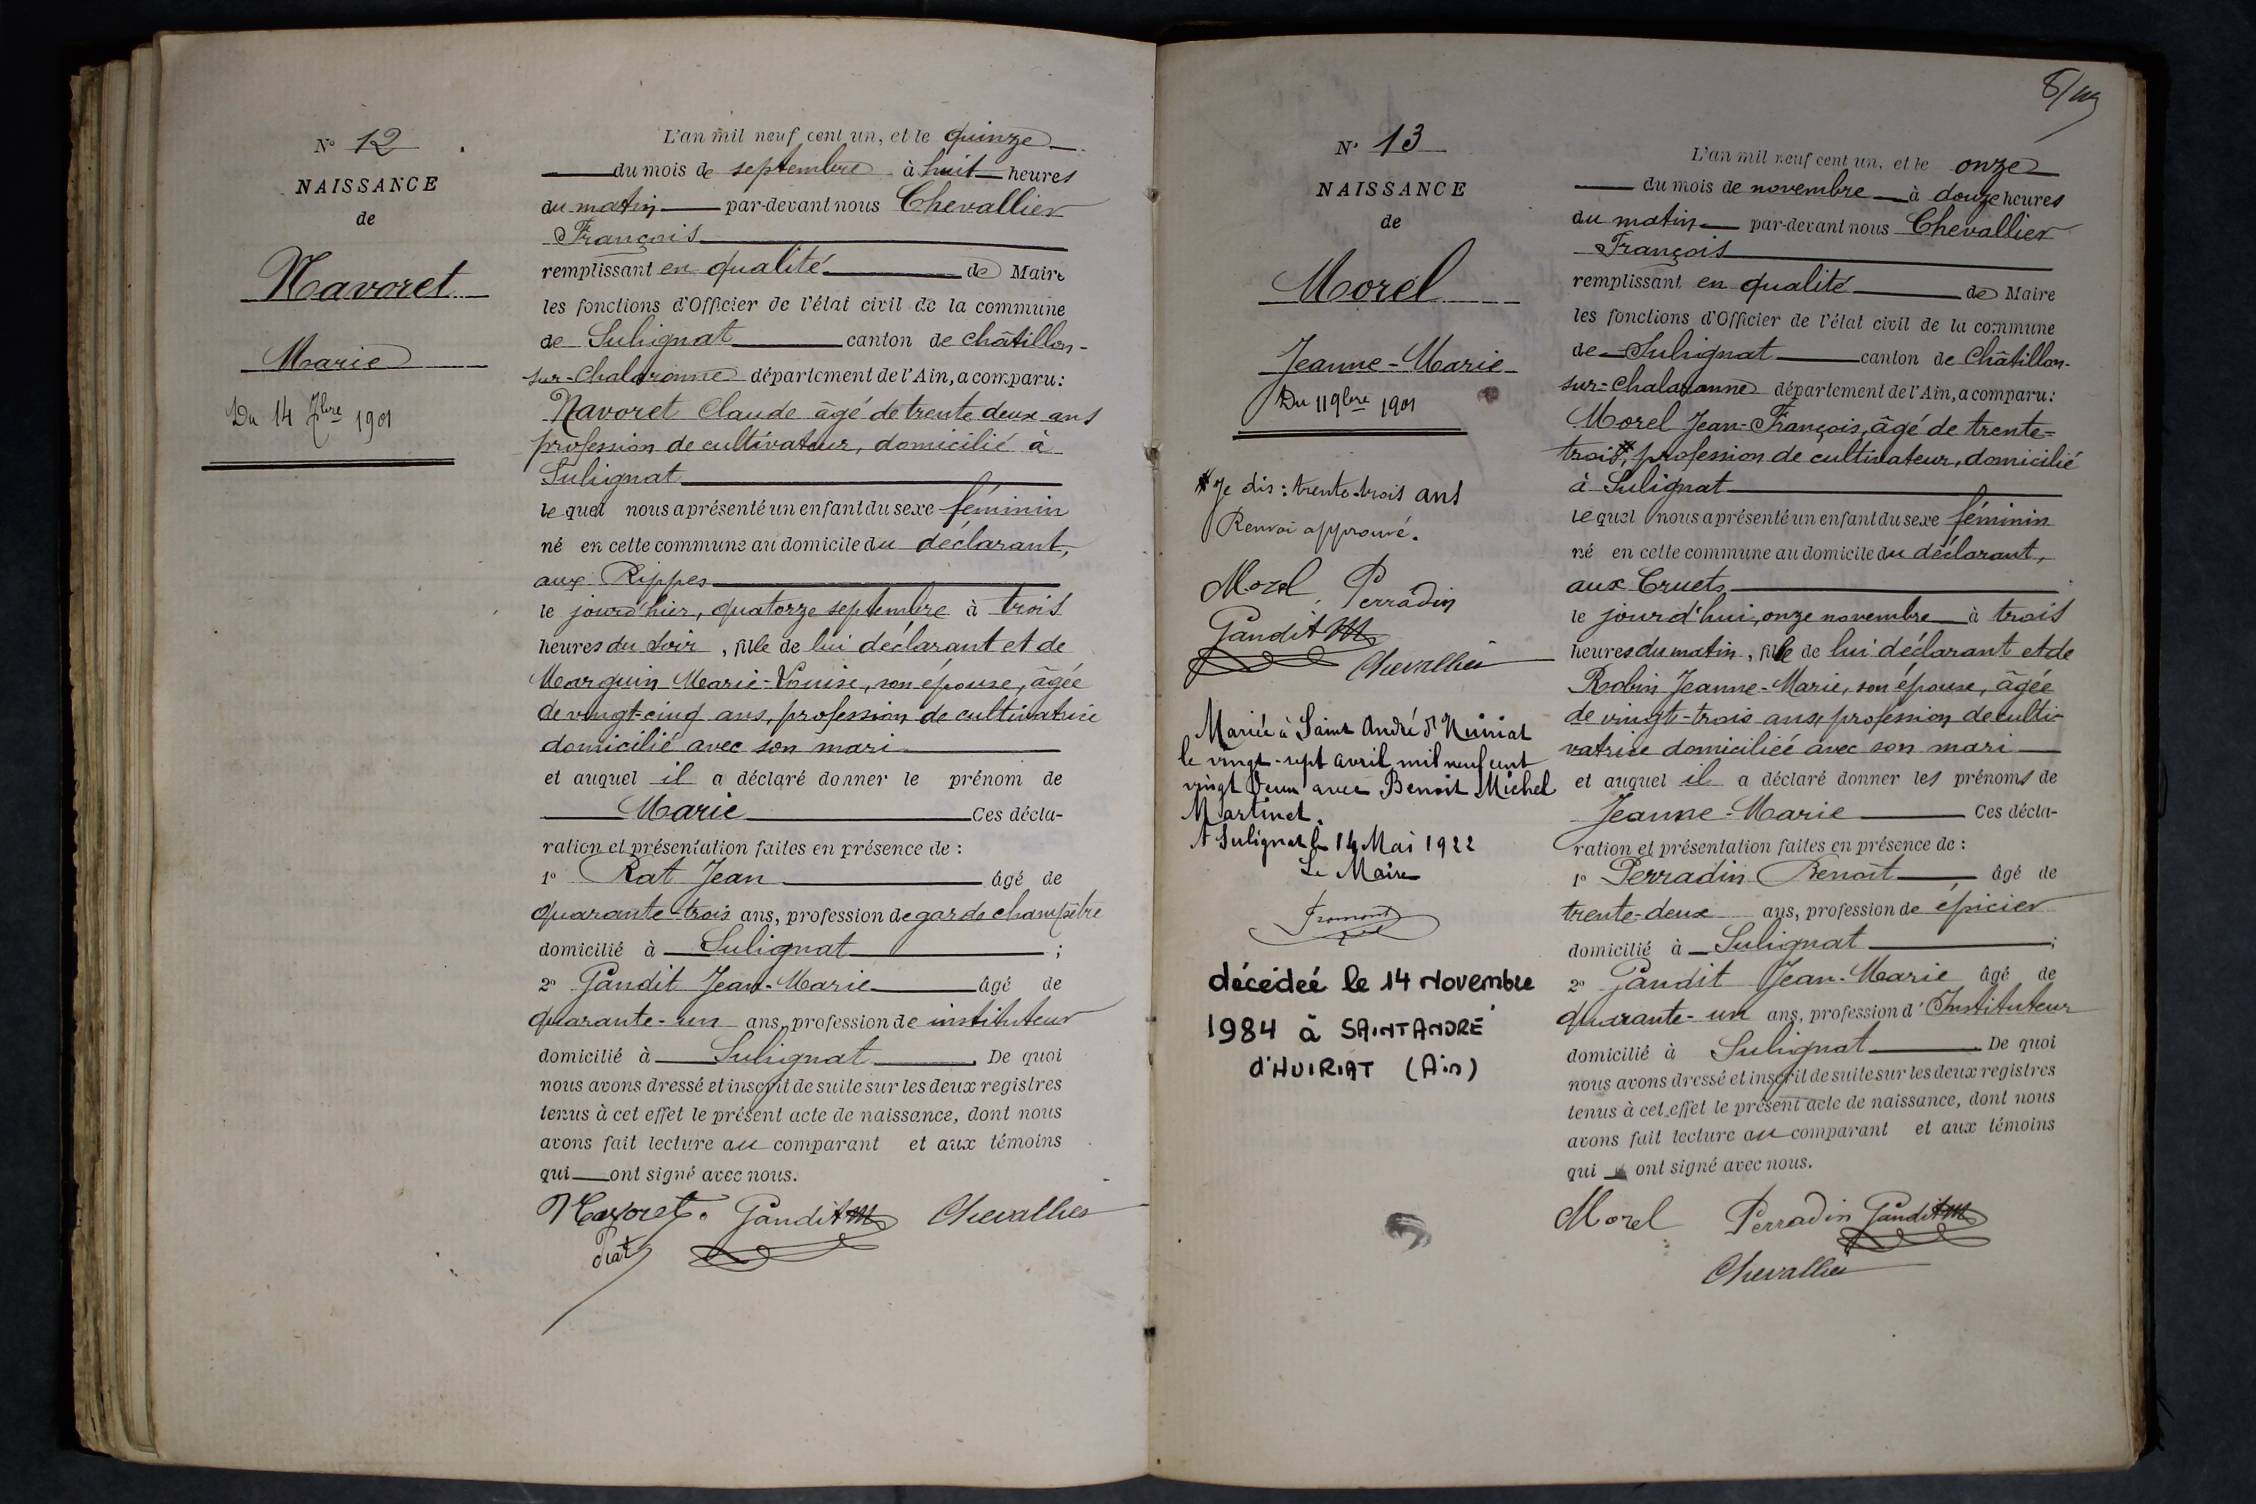 N° 12
NAISSANCE
de
Navoret
Marie
Du 14 7bre 1901
L'an mil neuf cent un, et le quinze
du mois de septembre à huit heures
du matin par-devant nous Chevallier
François
remplissant en qualité de Maire
les fonctions d'Officier de l'état civil de la commune
de Sulignat canton de Châtillon-
sur-Chalaronne département de l'Ain, a comparu:
Navoret Claude âgé de trente deux ans
profession de cultivateur, domicilié à
Sulignat
le quel nous a présenté un enfant du sexe féminin
né en cette commune au domicile du déclarant,
aux Rippes
le jourd'hier, quatorze septembre à trois
heures du soir, fille de lui déclarant et de
Marguin Marie-Louise, son épouse, âgée
de vingt-cinq ans, profession de cultivatrice
domicilié avec son mari
et auquel il a déclaré donner le prénom de
Marie Ces décla-
ration et présentation faites en présence de :
1° Rat Jean âgé de
quarante-trois ans, profession de garde champêtre
domicilié à Sulignat ;
2° Gandit Jean-Marie âgé de
quarante-un ans, profession de instituteur
domicilié à Sulignat. De quoi
nous avons dressé et inscrit de suite sur les deux registres
tenus à cet effet le présent acte de naissance, dont nous
avons fait lecture au comparant et aux témoins
qui ont signé avec nous.
Navoret. Gandit JM Chevallier
Rat
8/
N° 13
NAISSANCE
de
Morel
Jeanne-Marie
Du 11 9bre 1901
* Je dis : trente-trois ans
Renvoi approuvé.
Morel Perradin
Gandit JM
Chevallier
Mariée à Saint André d'Huiriat
le vingt-sept avril mil neuf cent
vingt deux avec Benoit Michel
Martinet.
A Sulignat le 14 Mai 1922
Le Maire
décédeé le 14 Novembre
1984 à SAINT ANDRÉ
d'HUIRIAT (Ain)
L'an mil neuf cent un, et le onze
du mois de novembre à douze heures
du matin par-devant nous Chevallier
François
remplissant en qualité de Maire
les fonctions d'Officier de l'état civil de la commune
de Sulignat canton de Châtillon-
sur-Chalaronne département de l'Ain, a comparu:
Morel Jean-François, âgé de trente-
trois*, profession de cultivateur, domicilié
à Sulignat
le quel nous a présenté un enfant du sexe féminin
né en cette commune au domicile du déclarant,
aux Cruets
le jourd'hui, onze novembre à trois
heures du matin, fille de lui déclarant et de
Robin Jeanne-Marie, son épouse, âgée
de vingt-trois ans, profession de culti-
vatrice domiciliée avec son mari
et auquel il a déclaré donner les prénoms de
Jeanne-Marie Ces décla-
ration et présentation faites en présence de :
1° Perradin Benoît âgé de
trente-deux ans, profession de épicier
domicilié à Sulignat ;
2° Gandit Jean-Marie âgé de
quarante-un ans, profession d'Instituteur
domicilié à Sulignat De quoi
nous avons dressé et inscrit de suite sur les deux registres
tenus à cet effet le présent acte de naissance, dont nous
avons fait lecture au comparant et aux témoins
qui ont signé avec nous.
Morel Perradin Gandit JM
Chevallier